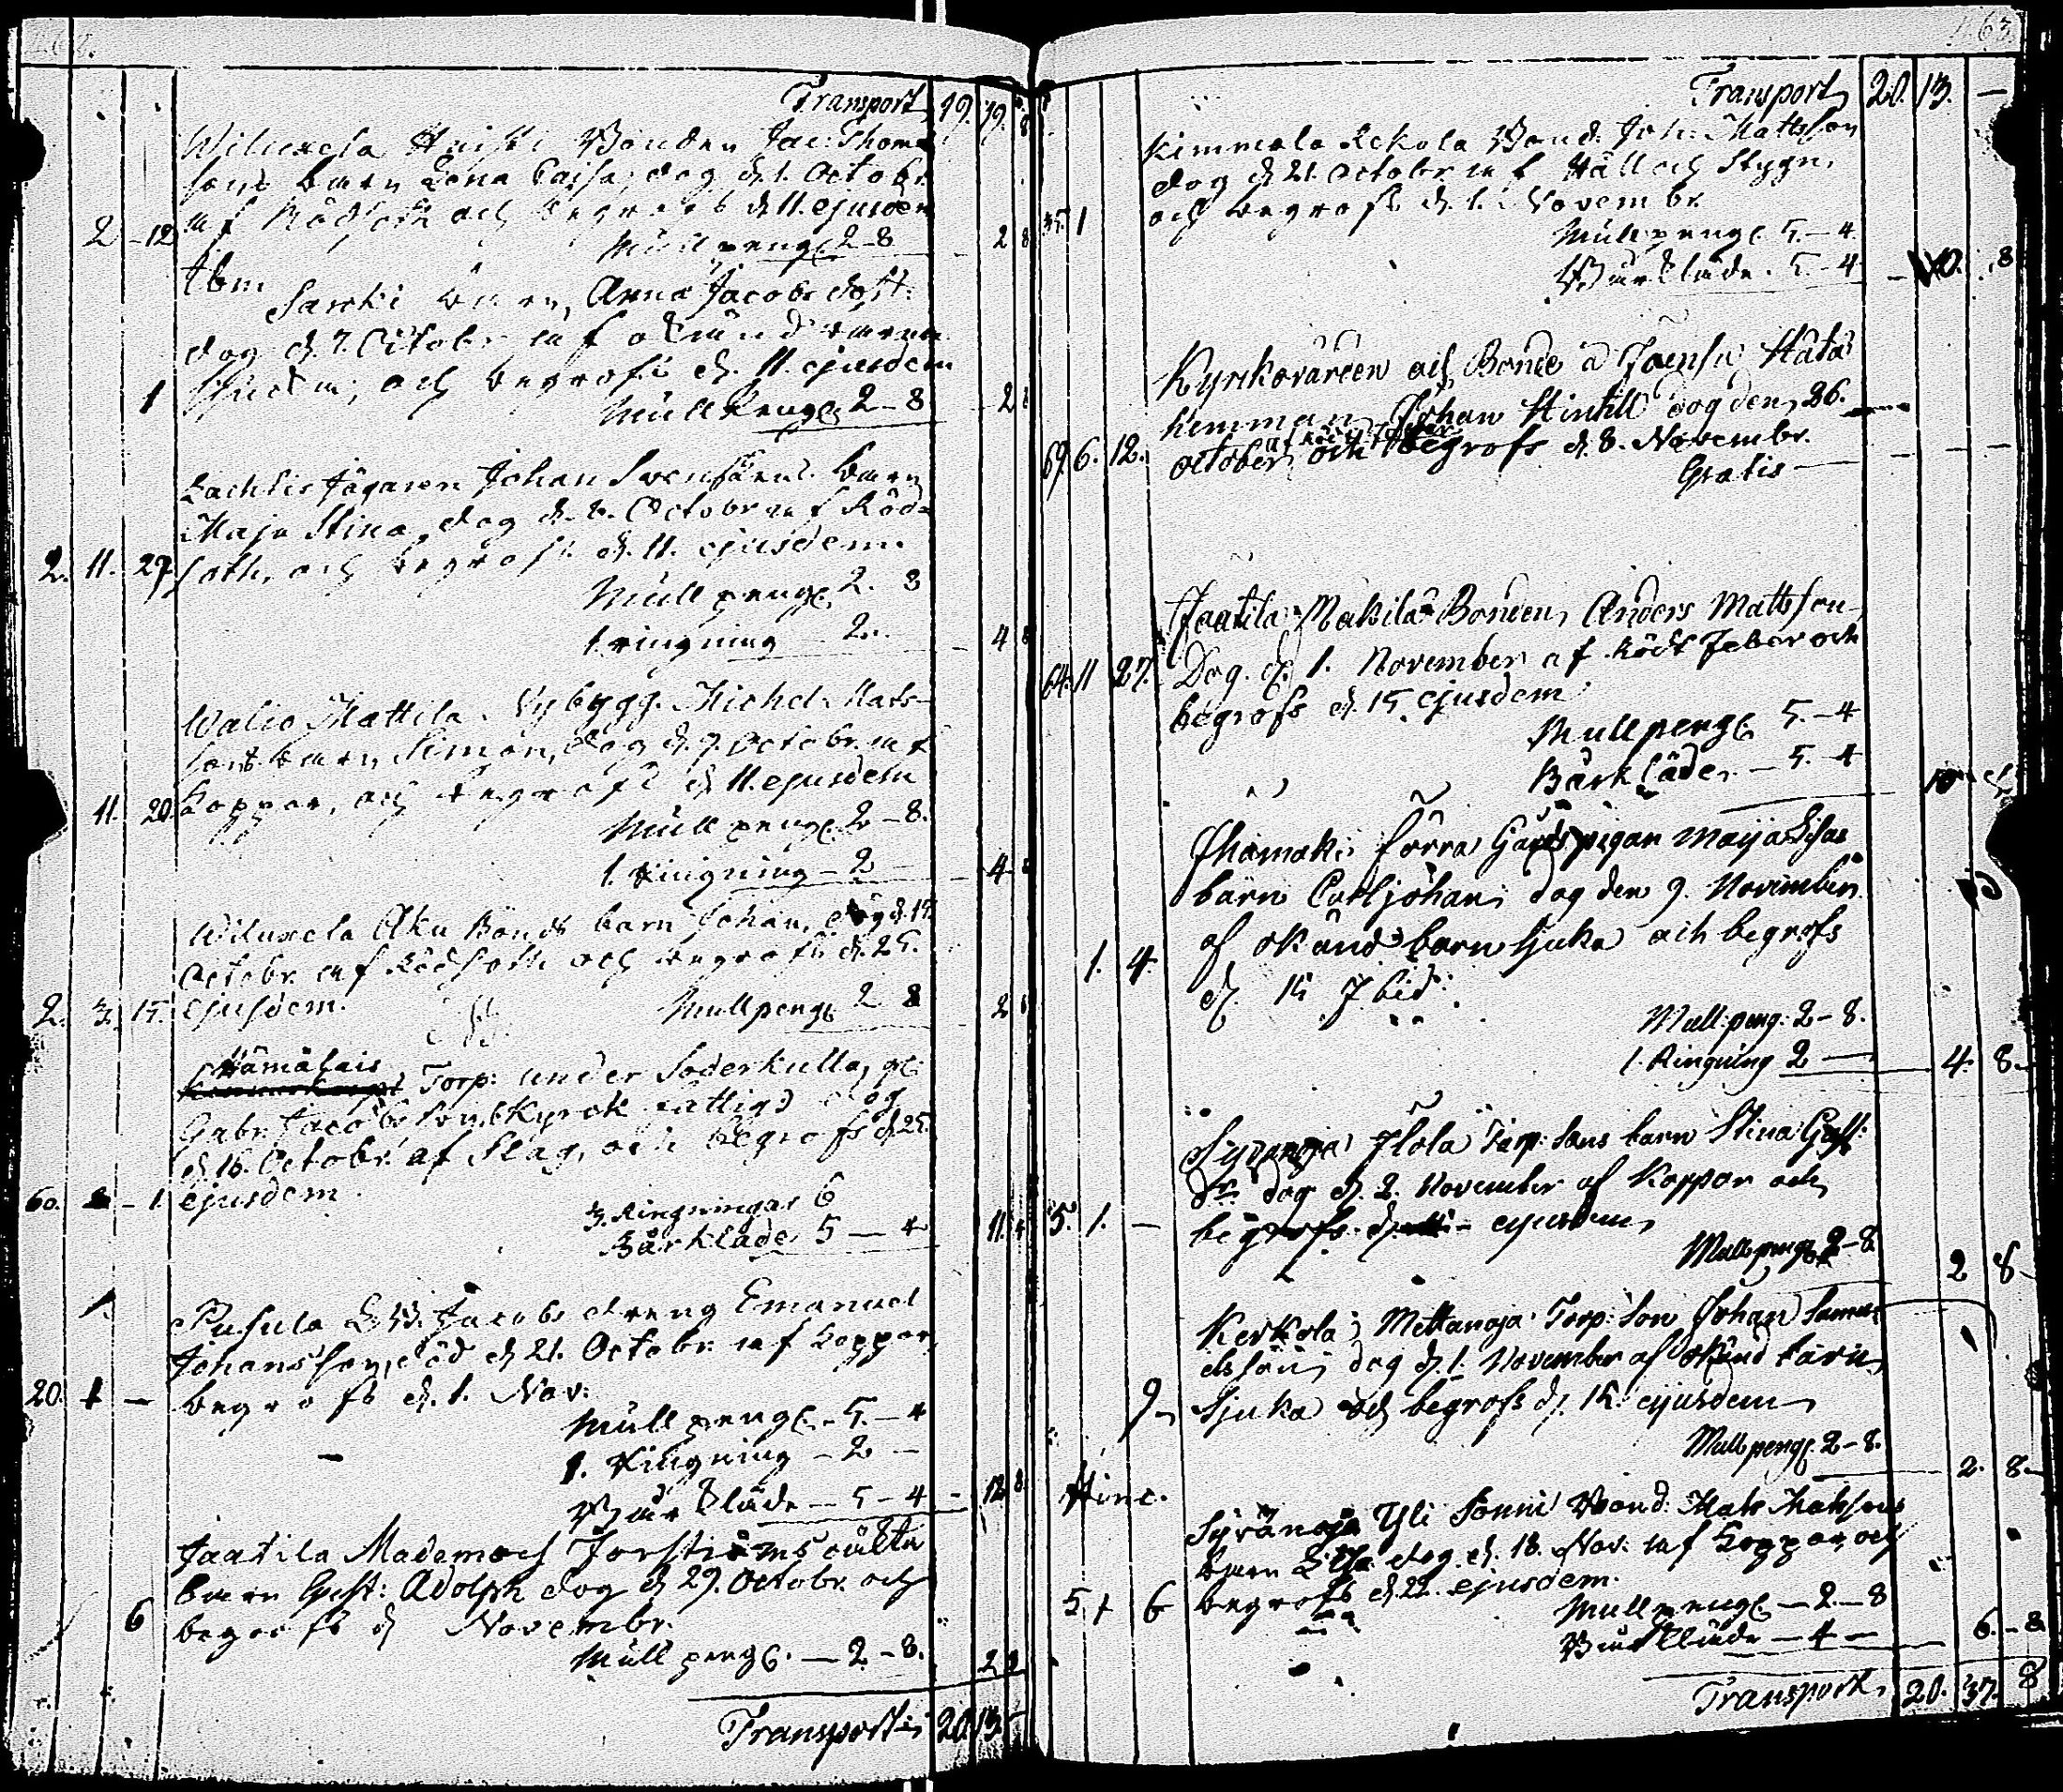 Transport 19. 19. 8
Wiluxela Bonden Jac: Thomæ
sons barn Lena Caisa, dog d. 1. Octobr.
2 - 12 af Rödsoth och begrofs d. 11. ejusdem
Mull peng. 2 - 8 2 8
Ibm
Sarki barn, Anna Jacobs dott:
dog d. 7. Octobr. af okänd barna
1 sjuka, och begrofs d. 11. ejusdem
Mull Peng. 2 - 8 2 8
Lachtis Jägaren Johan Svensons barn
Maja Stina, dog d. 8. Octobr. af Röd-
2. 11. 27. soth, och begrofs d. 11. ejusdem.
Mull peng. 2. 8
1 ringning 2. 4 8
Walio Mattila Nybygg. Michel Mats-
sons barn Simon, dog d. 9. Octobr. af
11. 20. Koppor, och begrofs d. 11. ejusdem
Mull peng. 2 - 8.
1. Ringning - 2 4 8
Wiluxela Aku Bonds barn Johan, dog d. 15
Octobr. af Rödsoth och begrofs d. 25.
2. 3. 15. ejusdem.
Mull peng. 2 8 2 8
Hämälais
Torp: under Söderkulla,
Gabr. Jacobsson, Kyrck fattig, dog
d. 16. Octobr. af Slag, och begrofs d. 25.
60. - 1. ejusdem
3. Ringningar 6
Bårkläde 5 - 4 11. 4
1.
Pusula Jacobs dreng Emanuel
Johansson, död d. 21. Octobr. af Koppor,
20. 1 - begrofs d. 1. Nov:
Mull peng. - 5. - 4
1. Ringning - 2 -
Bår Kläde - 5 - 4 - 12 8
Jaatila Mademois Forstræms oäkta
barn Gust: Adolph dog d. 29. Octobr. och
6 begrofs d. Novembr.
Mull peng. - 2 - 8. 2 8
Transport 20. 13. -
Transport 20. 13. -
Kimmola Eckola Bond. Joh: Mattsson
dog d. 21. Octobr. af Håll och Stygn,
35. 1 och begrofs d. 1. Novembr.
Mull peng. 5. - 4.
Bår Kläde. 5. - 4 - 10. 8
Kyrkovärden och Bonde å Jaensu
hemman, Johan Stintill dog den 26.
69. 6. 12. October och begrofs d. 8. Novembr.
Gratis - - - -
Jaatila Makila Bonden, Anders Mattsson
64. 11 27. Dog. d. 1. November af Röd feber och
begrofs d. 15 ejusdem
Mull peng. 5. - 4
Bårkläde. - 5. - 4
10 8
förra Gårds pigan Maija Lisas
barn Carl johan dog den 9. November
1. 4. af okänd barn sjuka och begrofs
d. 15 Ibid:
Mull: peng: 2 - 8.
1. Ringning 2 - 4. 8 -
Syvänoja Ilola Torp: sons barn Stina Gust:
dr. dog d. 2. November af Koppor och
5. 1. - begrofs d. ejusdem
Mull peng. 2 - 8 2 8 -
Kerkola Mettanoja Torp: Son Johan Samu
elsson dog d. 1. November af okänd barn
9 - Sjuka och begrofs d. 15. ejusdem
Mull peng. 2 - 8. 2. 8 -
Hinc.
Syvänoja Yli Sonni Bond: Mats Matssons
barn Lisa dog. d. 18. Nov: af Koppor, och
5 1 6 begrofs d. 22. ejusdem.
Mull peng. - 2 - 8
Bår Kläde - 4 - 6. - 8
Transport. 20. 37. 8